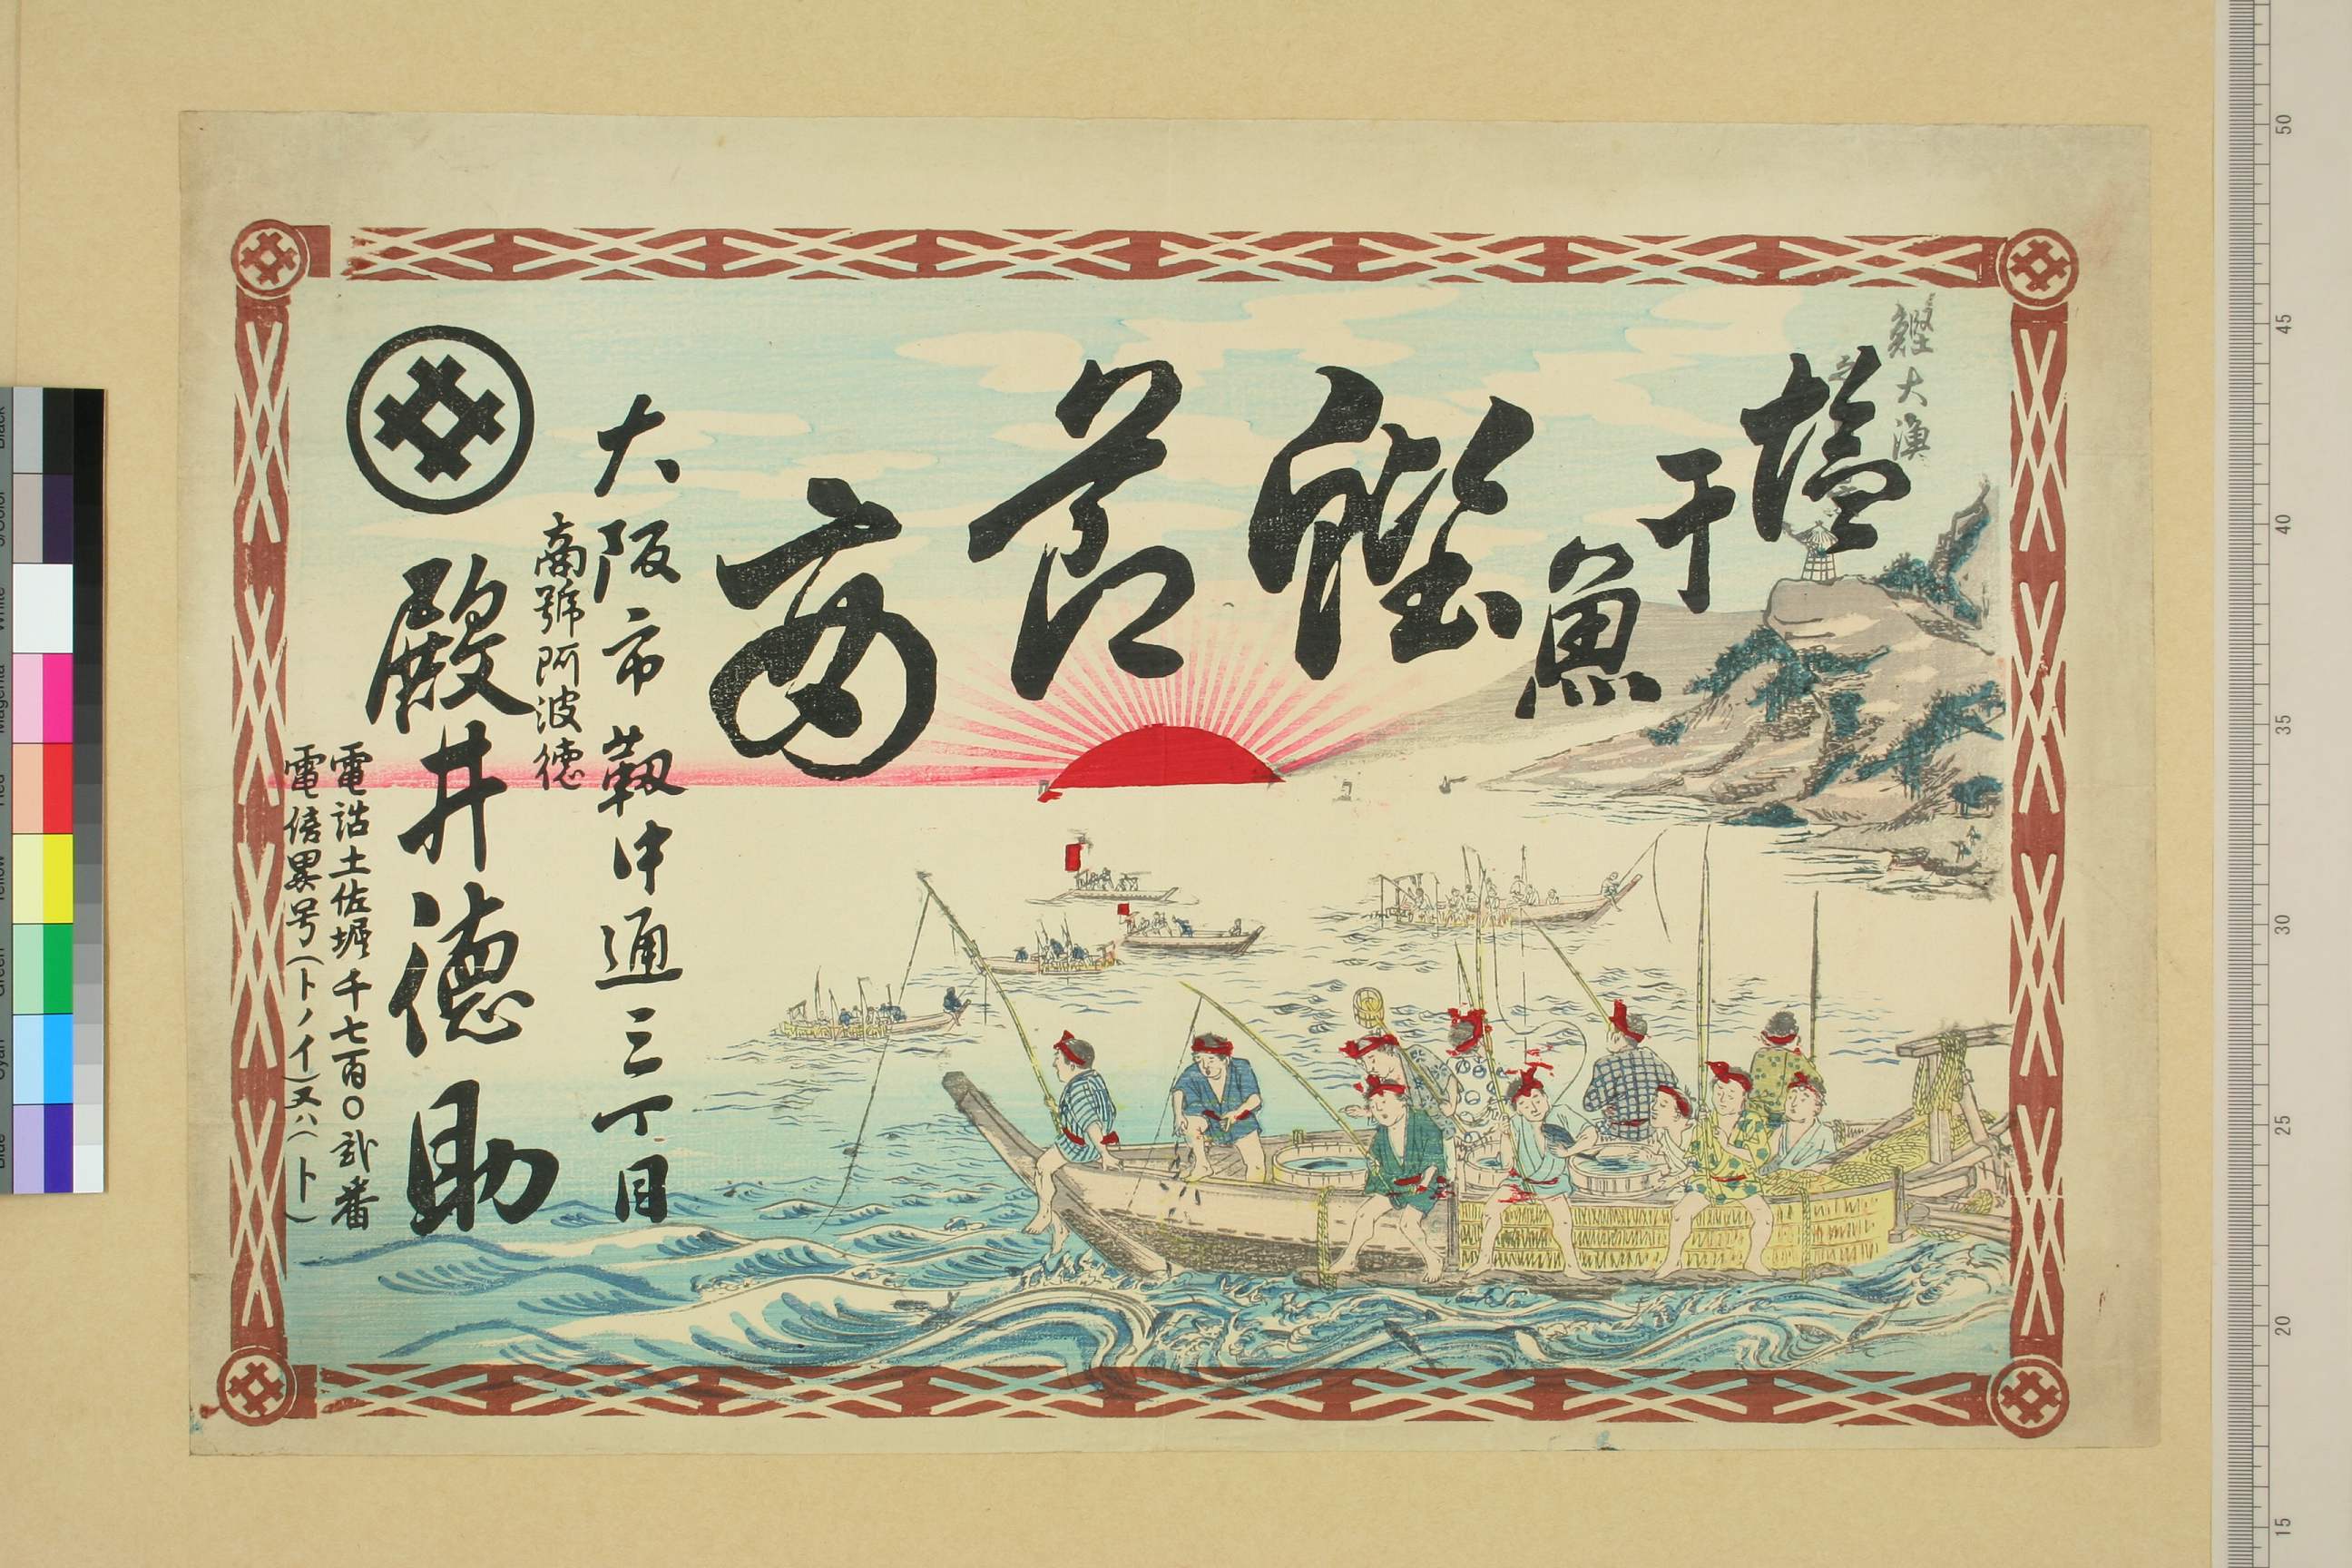 鰹大漁
之
塩干魚
鰹節商
大阪市靱中通三丁目
商號阿波徳
殿井徳助
電話土佐堀千七百〇弐番
電信畧号(トノイ)又ハ(ト)
Black
3/Color
White
Magenta
Red
Yellow
Green
Cyan
Blue
50
45
40
35
30
25
20
15